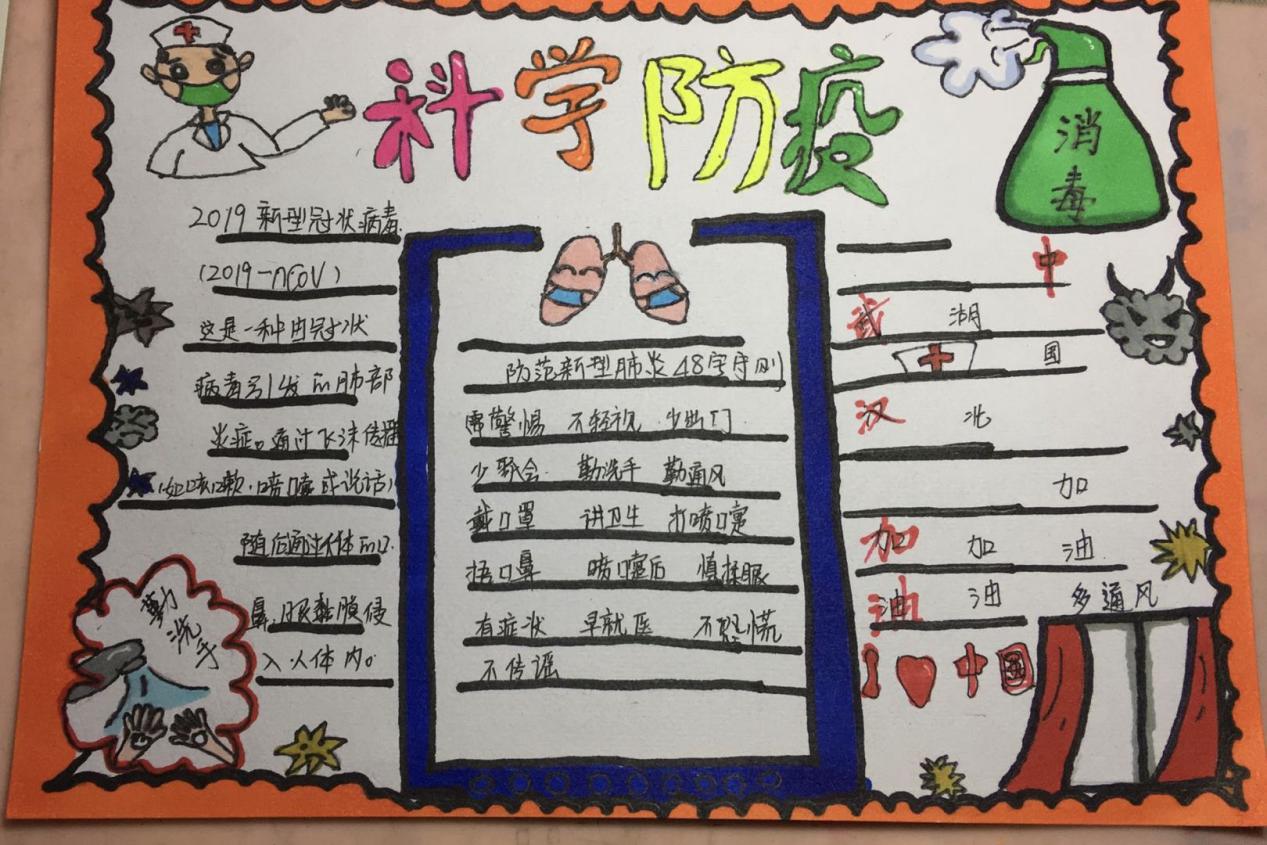 科学防疫
消毒
2019新型冠状病毒
(2019-nCoV)
这是一种由冠状
病毒引发的肺部
炎症。通过飞沫传播
(如咳嗽、喷嚏或说话)
随后通过人体的口.
鼻、眼黏膜侵
入人体内。
勤洗手
防范新型肺炎48字守则
需警惕 不轻视 少出门
少聚会 勤洗手 勤通风
戴口罩 讲卫生 打喷嚏
捂口鼻 喷嚏后 慎揉眼
有症状 早就医 不恐慌
不传谣
武汉加油
湖北加油
中国加油
I 中国
多通风